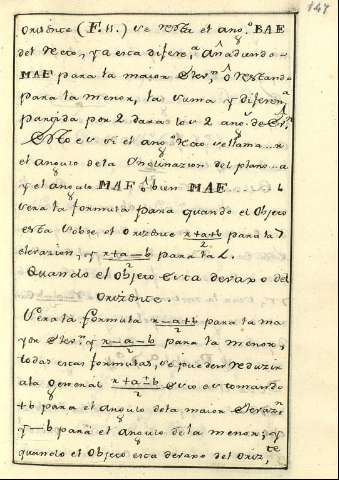 147
orizonte (F. 11.) se resta el ang.º BAE
del recto, y a esta difere.ª añadiendo
MAE para la maior Elev.n, ô restando
para la menor, la suma y diferen.ª
partida por 2 dara los 2 ang.s de Elev.n
Esto es si el ang.º recto se llama r
el angulo de la Inclinazion del plano a
y el angulo MAF ô bien MAE b
sera la formula para quando el Objeto
esta sobre el Orizonte r+a+b/2 para la
elevazion, y r+a–b/2 para la
Quando el Objeto esta devaxo del
Orizonte.
Sera la formula r–a+b/2 para la ma
yor Elev.n y r–a–b/2 para la menor;
todas estas formulas, se pueden reduzir
ala general r±a±b/2 Esto es tomando
+b para el Angulo dela maior Elevaz.n
y –b para el Angulo de la menor; y
quando el Objeto esta devaxo del Oriz.te